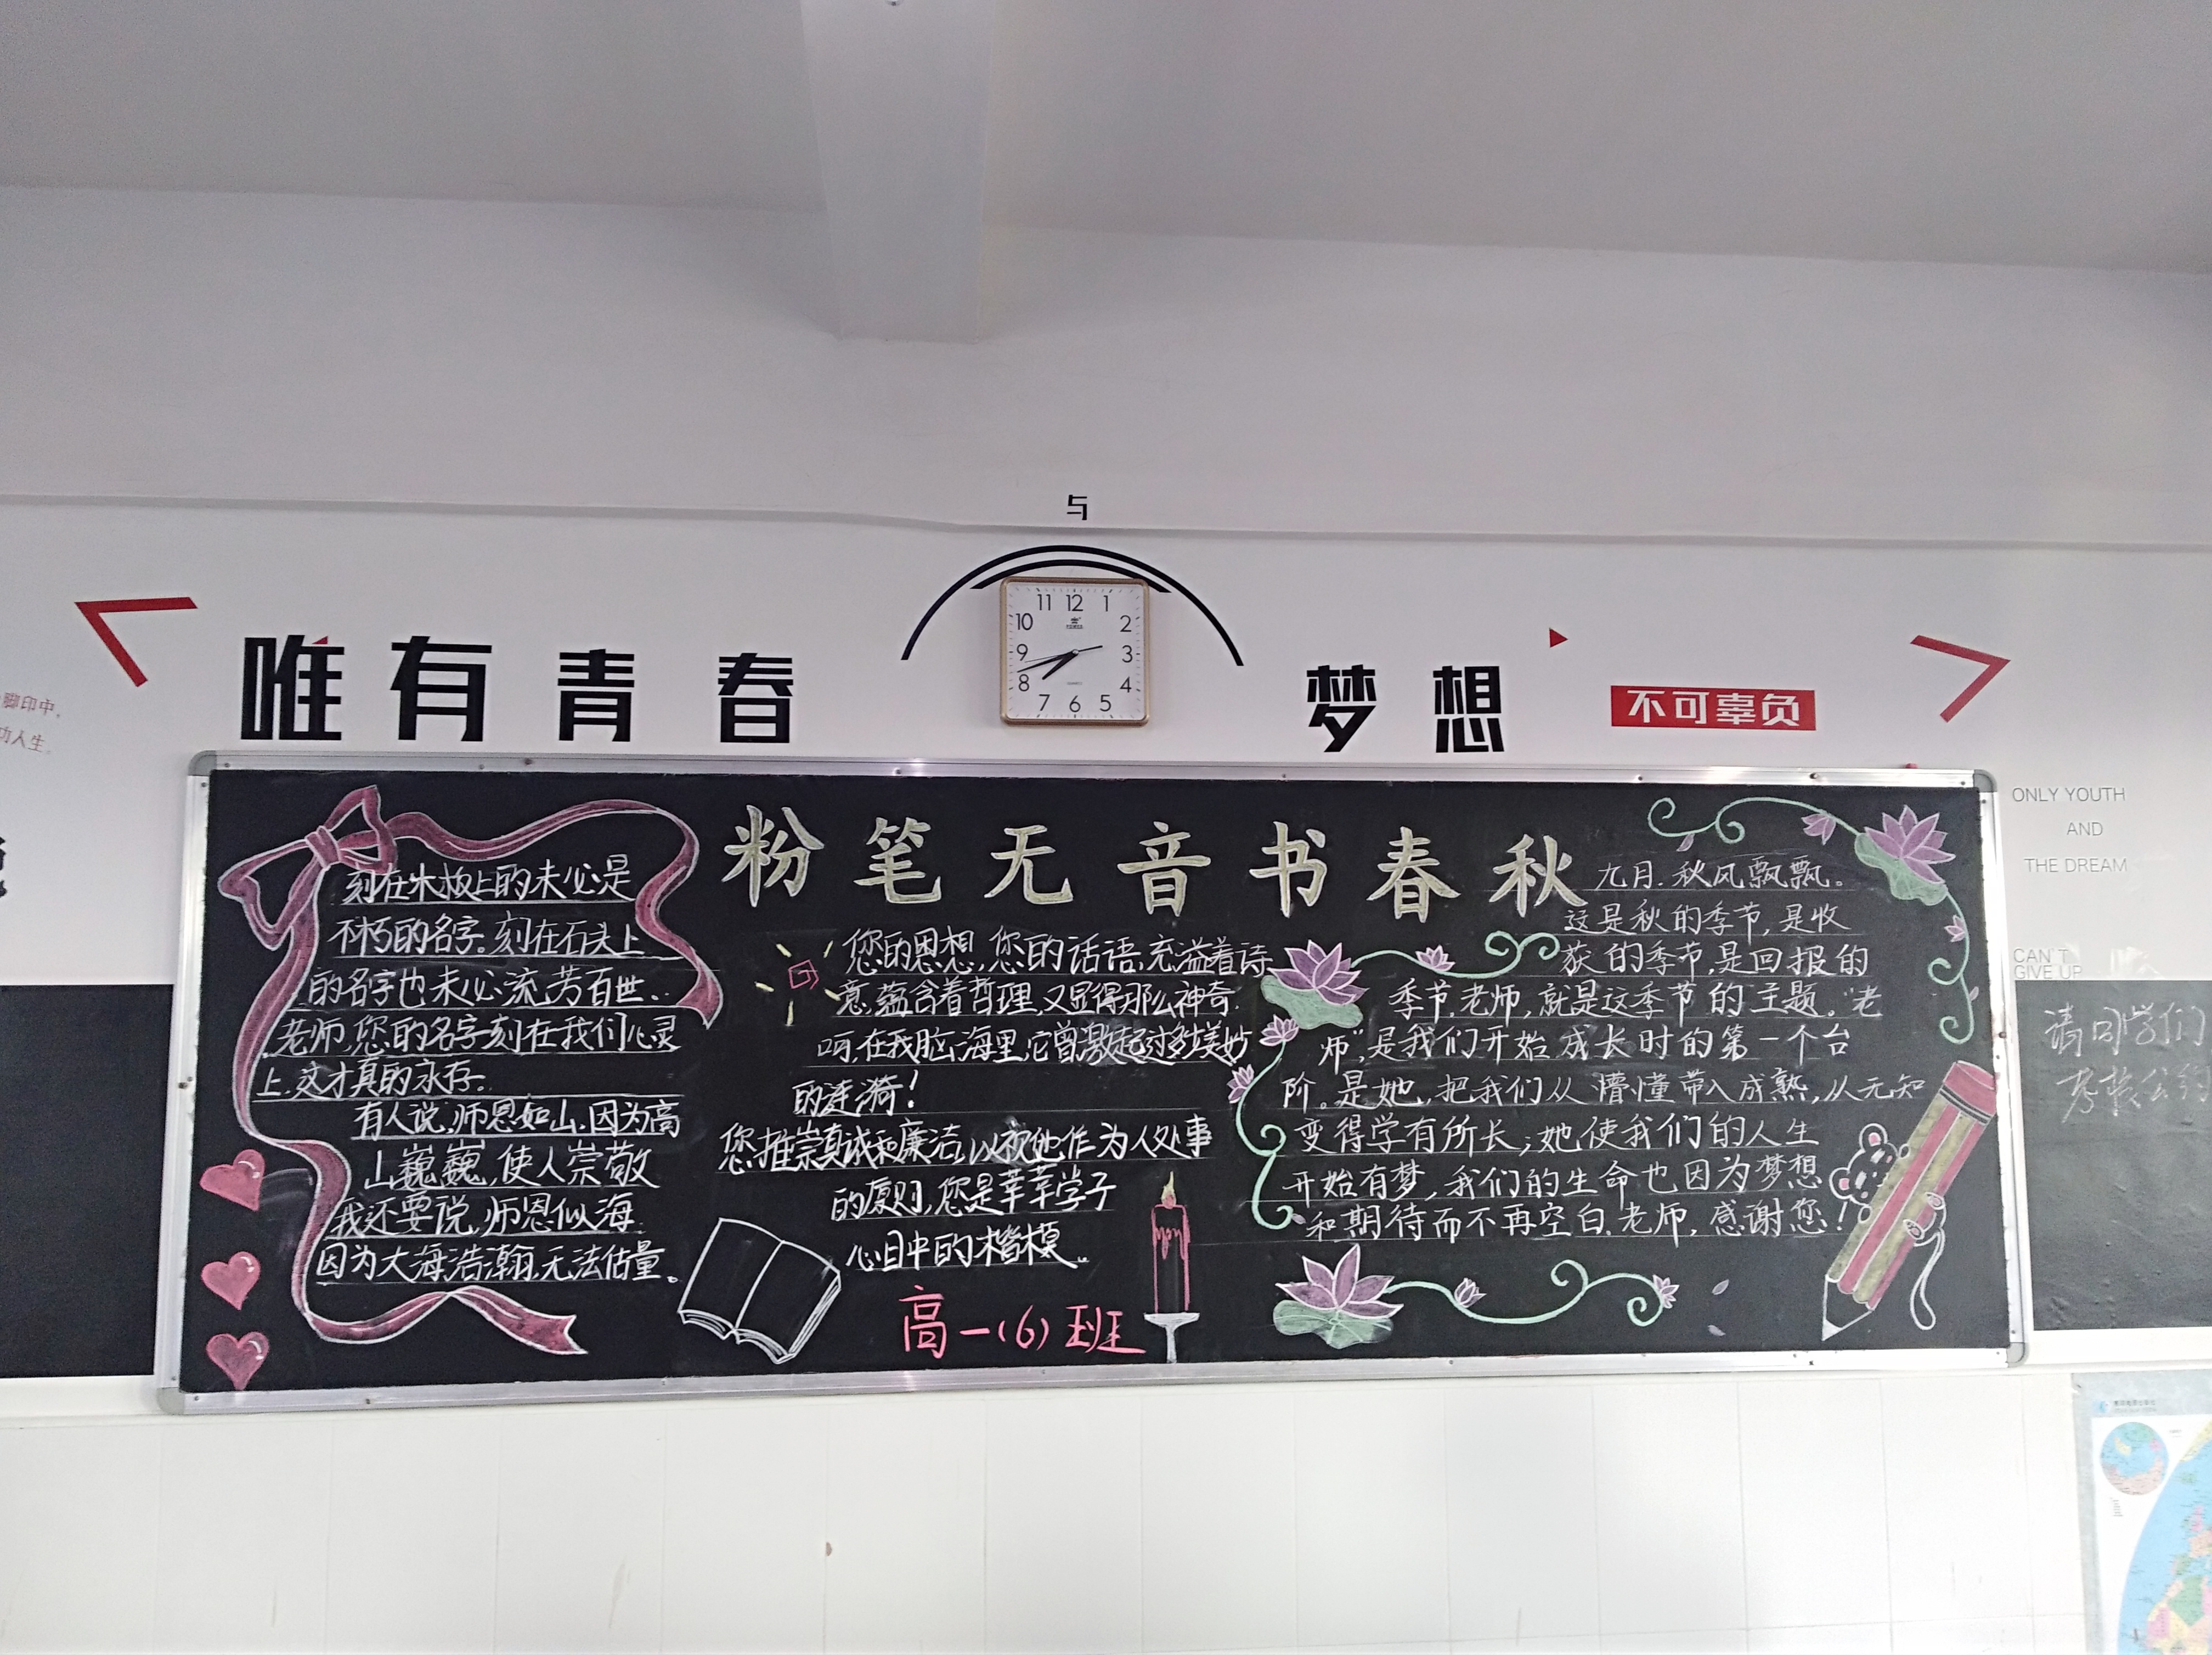 与
唯有青春
梦想
不可辜负
11 12 1
10 2
9 3
8 4
7 6 5
脚印中,
功人生.
ONLY YOUTH
AND
THE DREAM
CAN'T
GIVE UP
粉笔无音书春秋
刻在木板上的未必是
不朽的名字。刻在石头上
的名字也未必流芳百世.
老师,您的名字刻在我们心灵
上.这才真的永存.
有人说,师恩如山.因为高
山巍巍,使人崇敬
我还要说,师恩似海
因为大海浩瀚,无法估量。
您的思想,您的话语,充溢着诗
意,蕴含着哲理,又显得那么神奇.
呵,在我脑海里,它曾激起过多少美妙
的涟漪!
您推崇真诚和廉洁,以视他作为人处事
的原则,您是莘莘学子
心目中的楷模。
高一(6)班
九月.秋风飘飘。
这是秋的季节,是收
获的季节,是回报的
季节.老师,就是这季节的主题。“老
师”,是我们开始成长时的第一个台
阶。是她,把我们从懵懂带入成熟,从无知
变得学有所长;她使我们的人生
开始有梦,我们的生命也因为梦想
和期待而不再空白.老师,感谢您!
请同学们